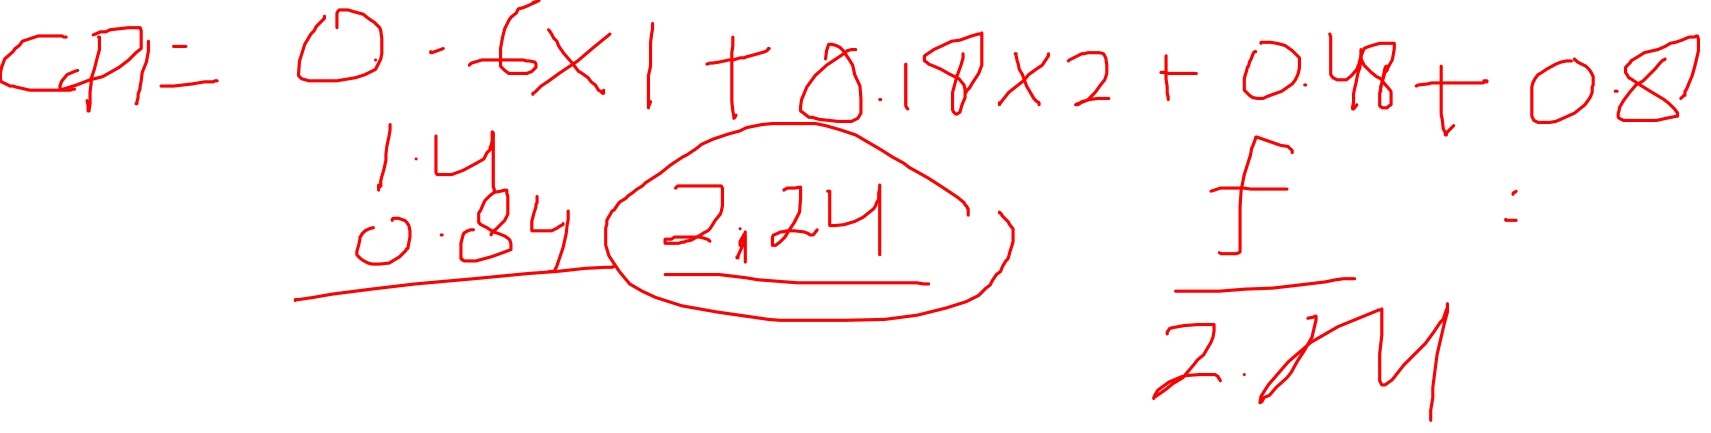 CPI = 0.6x1 + 0.18x2 + 0.48 + 0.8
1.4
0.84
2,24
f =
2.24